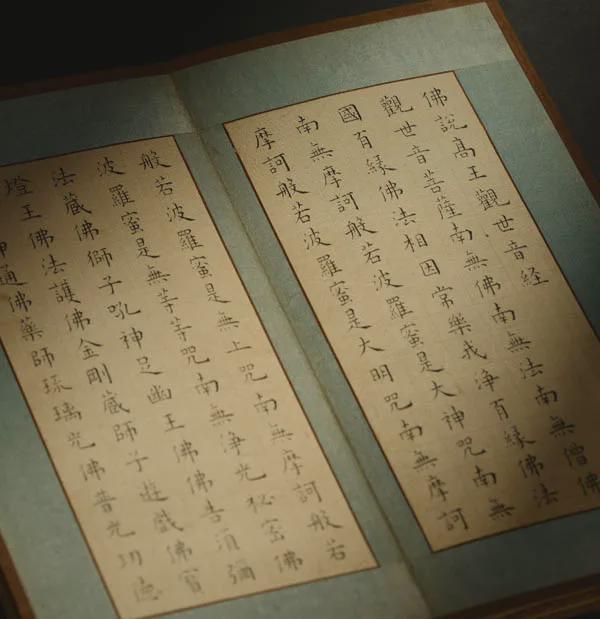 佛說高王觀世音經
觀世音菩薩南無佛南無法南無僧佛
國有緣佛法相因常樂我淨有緣佛法
南無摩訶般若波羅蜜是大神咒南無
摩訶般若波羅蜜是大明咒南無摩訶
般若波羅蜜是無上咒南無摩訶般若
波羅蜜是無等等咒南無淨光秘密佛
法藏佛獅子吼神足幽王佛佛告須彌
燈王佛法護佛金剛藏師子遊戲佛寶
神通佛藥師琉璃光佛普光功德